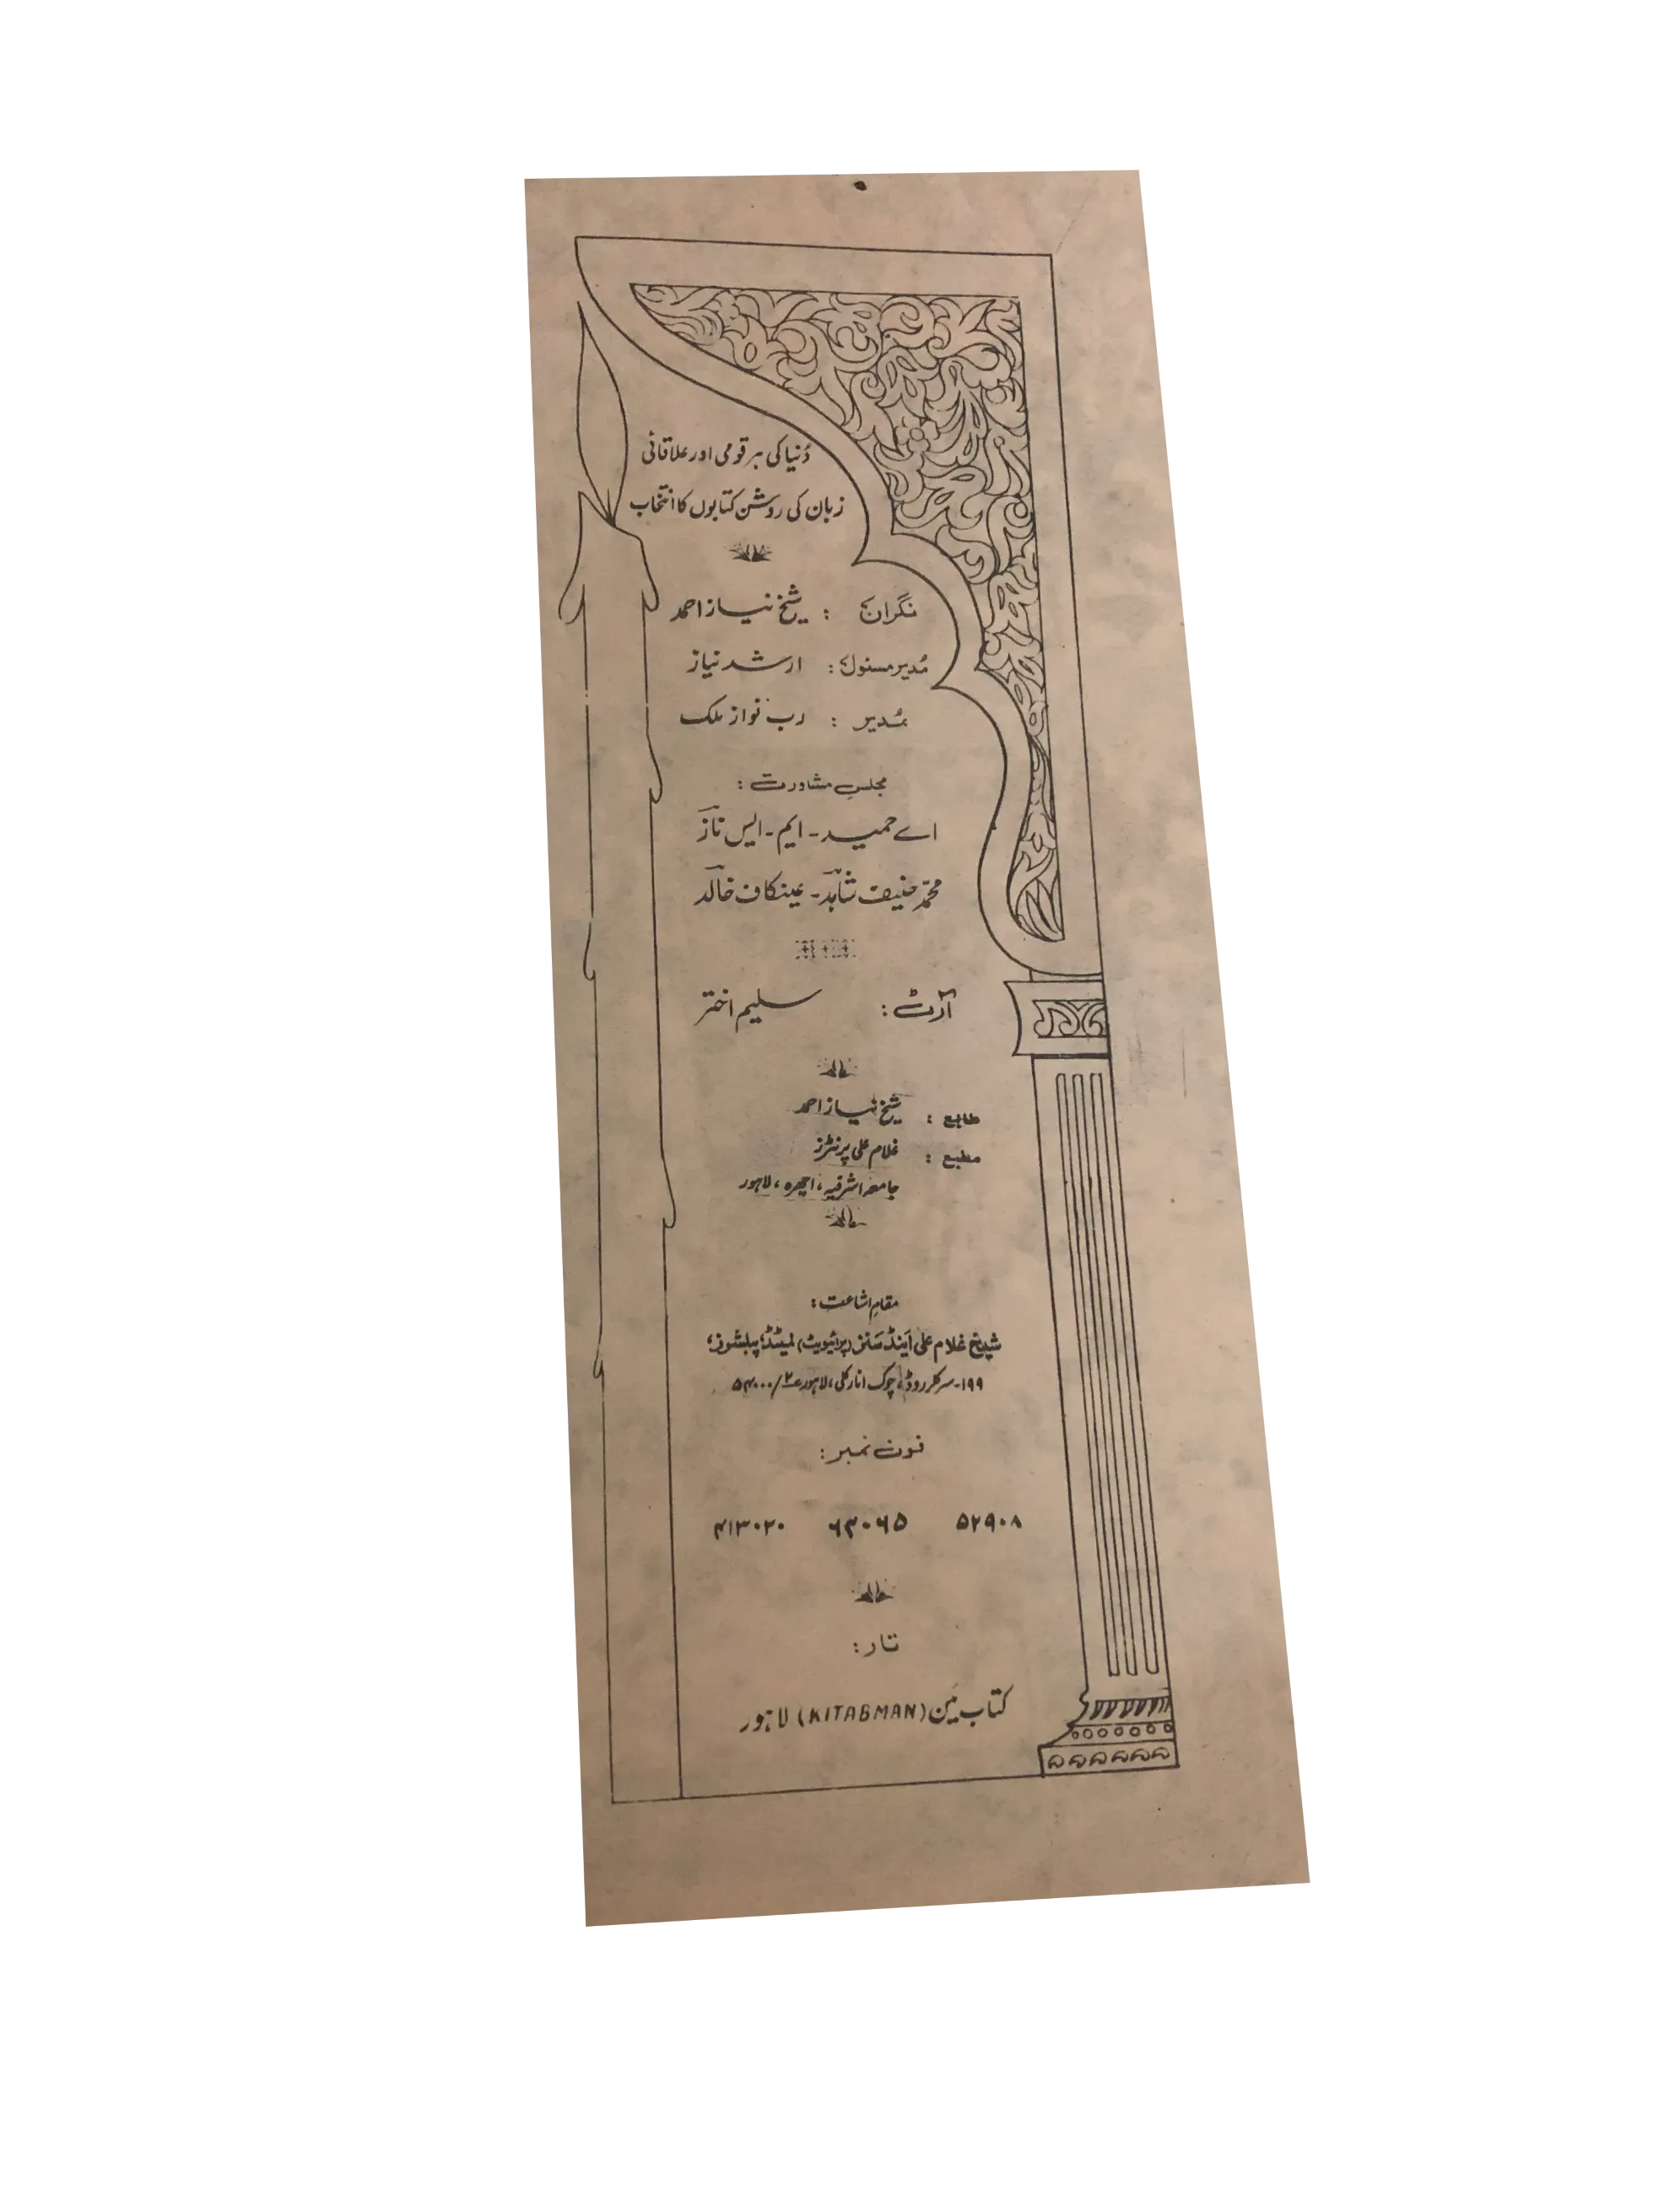 دُنیا کی ہر قومی اور علاقائی
زبان کی روشن کتابوں کا انتخاب
نگران : شیخ نیاز احمد
مُدیر مسئول : ارشد نیاز
مُدیر : رب نواز ملک
مجلسِ مشاورت :
اے حمید - ایم - ایس نازؔ
محمّد حنیف شاہدؔ - عینکاف خالدؔ
آرٹ : سلیم اختر
طابع : شیخ نیاز احمد
مطبع : غلام علی پرنٹرز
جامعہ اشرفیہ ، اچھرہ ، لاہور
مقامِ اشاعت :
شیخ غلام علی اینڈ سَنز (پرائیویٹ) لمیٹڈ، پبلشرز،
۱۹۹- سرکلر روڈ، چوک انارکلی، لاہور ۲/۵۴۰۰۰
فون نمبر :
۵۲۹۰۸ ۶۳۰۶۵ ۴۱۳۰۲۰
تار :
کتاب مَین (KITABMAN) لاہور